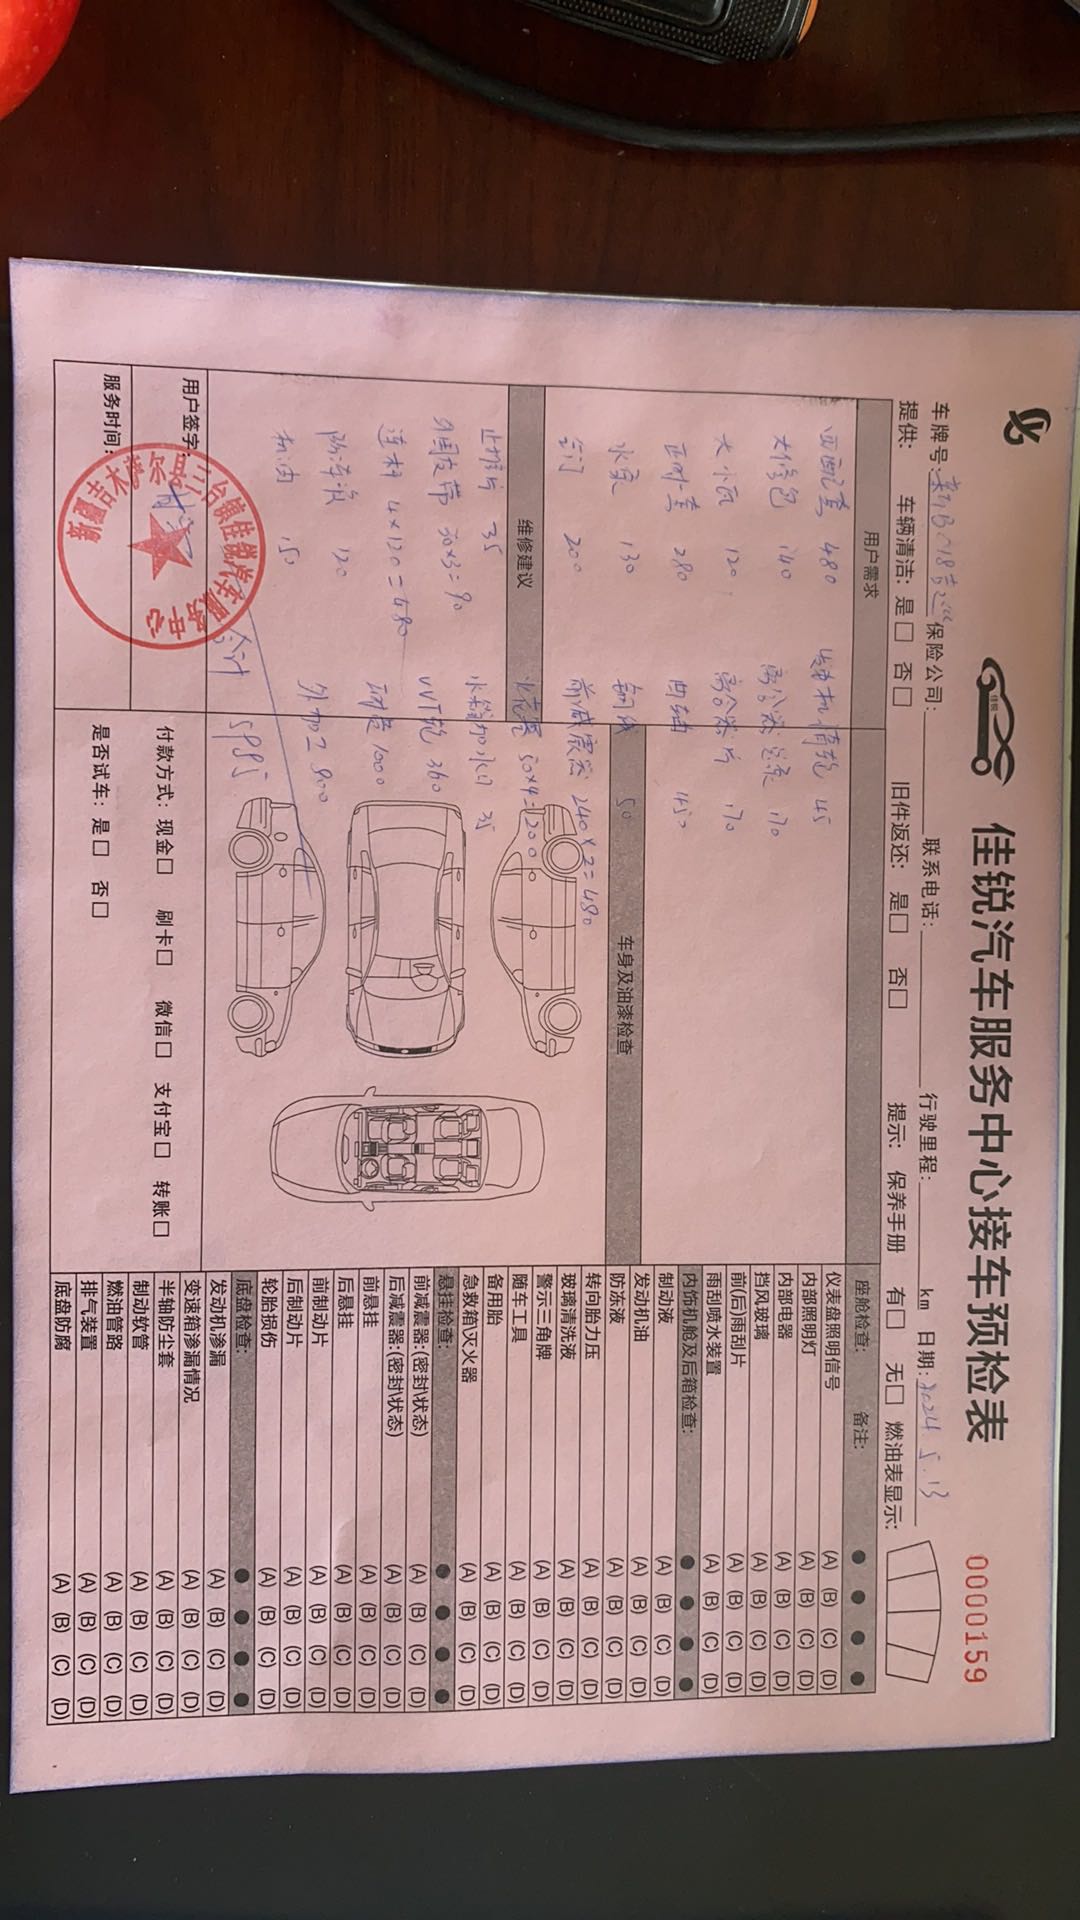 佳锐汽车服务中心接车预检表
0000159
佳锐
车牌号: B018 保险公司: 联系电话: 行驶里程: km 日期: 2024 5.13
提供: 车辆清洁: 是□ 否□ 旧件返还: 是□ 否□ 提示: 保养手册 有□ 无□ 燃油表显示:
用户需求
四配套 480 发电机惰轮 45
大修包 240 离合器总泵 170
大小瓦 120 离合器片 170
正时套 280 曲轴 450
水泵 130 50
节门 200 前减震器 240×2=480
维修建议
火花塞 50×4=200
止推片 35 水箱加水口 35
外围皮带 30×3=90 VVT轮 360
连杆 4×120=480 工时费 1000
防冻液 120 外加工 800
机油 150
合计 5985
车身及油漆检查
用户签字:
服务时间:
付款方式: 现金□ 刷卡□ 微信□ 支付宝□ 转账□
是否试车: 是□ 否□
新疆吉木萨尔县三台镇佳锐汽车服务中心
座舱检查: 备注: ● ● ● ●
仪表盘照明信号 (A) (B) (C) (D)
内部照明灯 (A) (B) (C) (D)
内部电器 (A) (B) (C) (D)
挡风玻璃 (A) (B) (C) (D)
前(后)雨刮片 (A) (B) (C) (D)
雨刮喷水装置 (A) (B) (C) (D)
内饰机舱及后箱检查: ● ● ● ●
制动液 (A) (B) (C) (D)
发动机油 (A) (B) (C) (D)
防冻液 (A) (B) (C) (D)
转向胎力压 (A) (B) (C) (D)
玻璃清洗液 (A) (B) (C) (D)
警示三角牌 (A) (B) (C) (D)
随车工具 (A) (B) (C) (D)
备用胎 (A) (B) (C) (D)
急救箱\灭火器 (A) (B) (C) (D)
悬挂检查: ● ● ● ●
前减震器:(密封\状态) (A) (B) (C) (D)
后减震器:(密封\状态) (A) (B) (C) (D)
前悬挂 (A) (B) (C) (D)
后悬挂 (A) (B) (C) (D)
前制动片 (A) (B) (C) (D)
后制动片 (A) (B) (C) (D)
轮胎损伤 (A) (B) (C) (D)
底盘检查: ● ● ● ●
发动机渗漏 (A) (B) (C) (D)
变速箱渗漏情况 (A) (B) (C) (D)
半轴防尘套 (A) (B) (C) (D)
制动软管 (A) (B) (C) (D)
燃油管路 (A) (B) (C) (D)
排气装置 (A) (B) (C) (D)
底盘防腐 (A) (B) (C) (D)